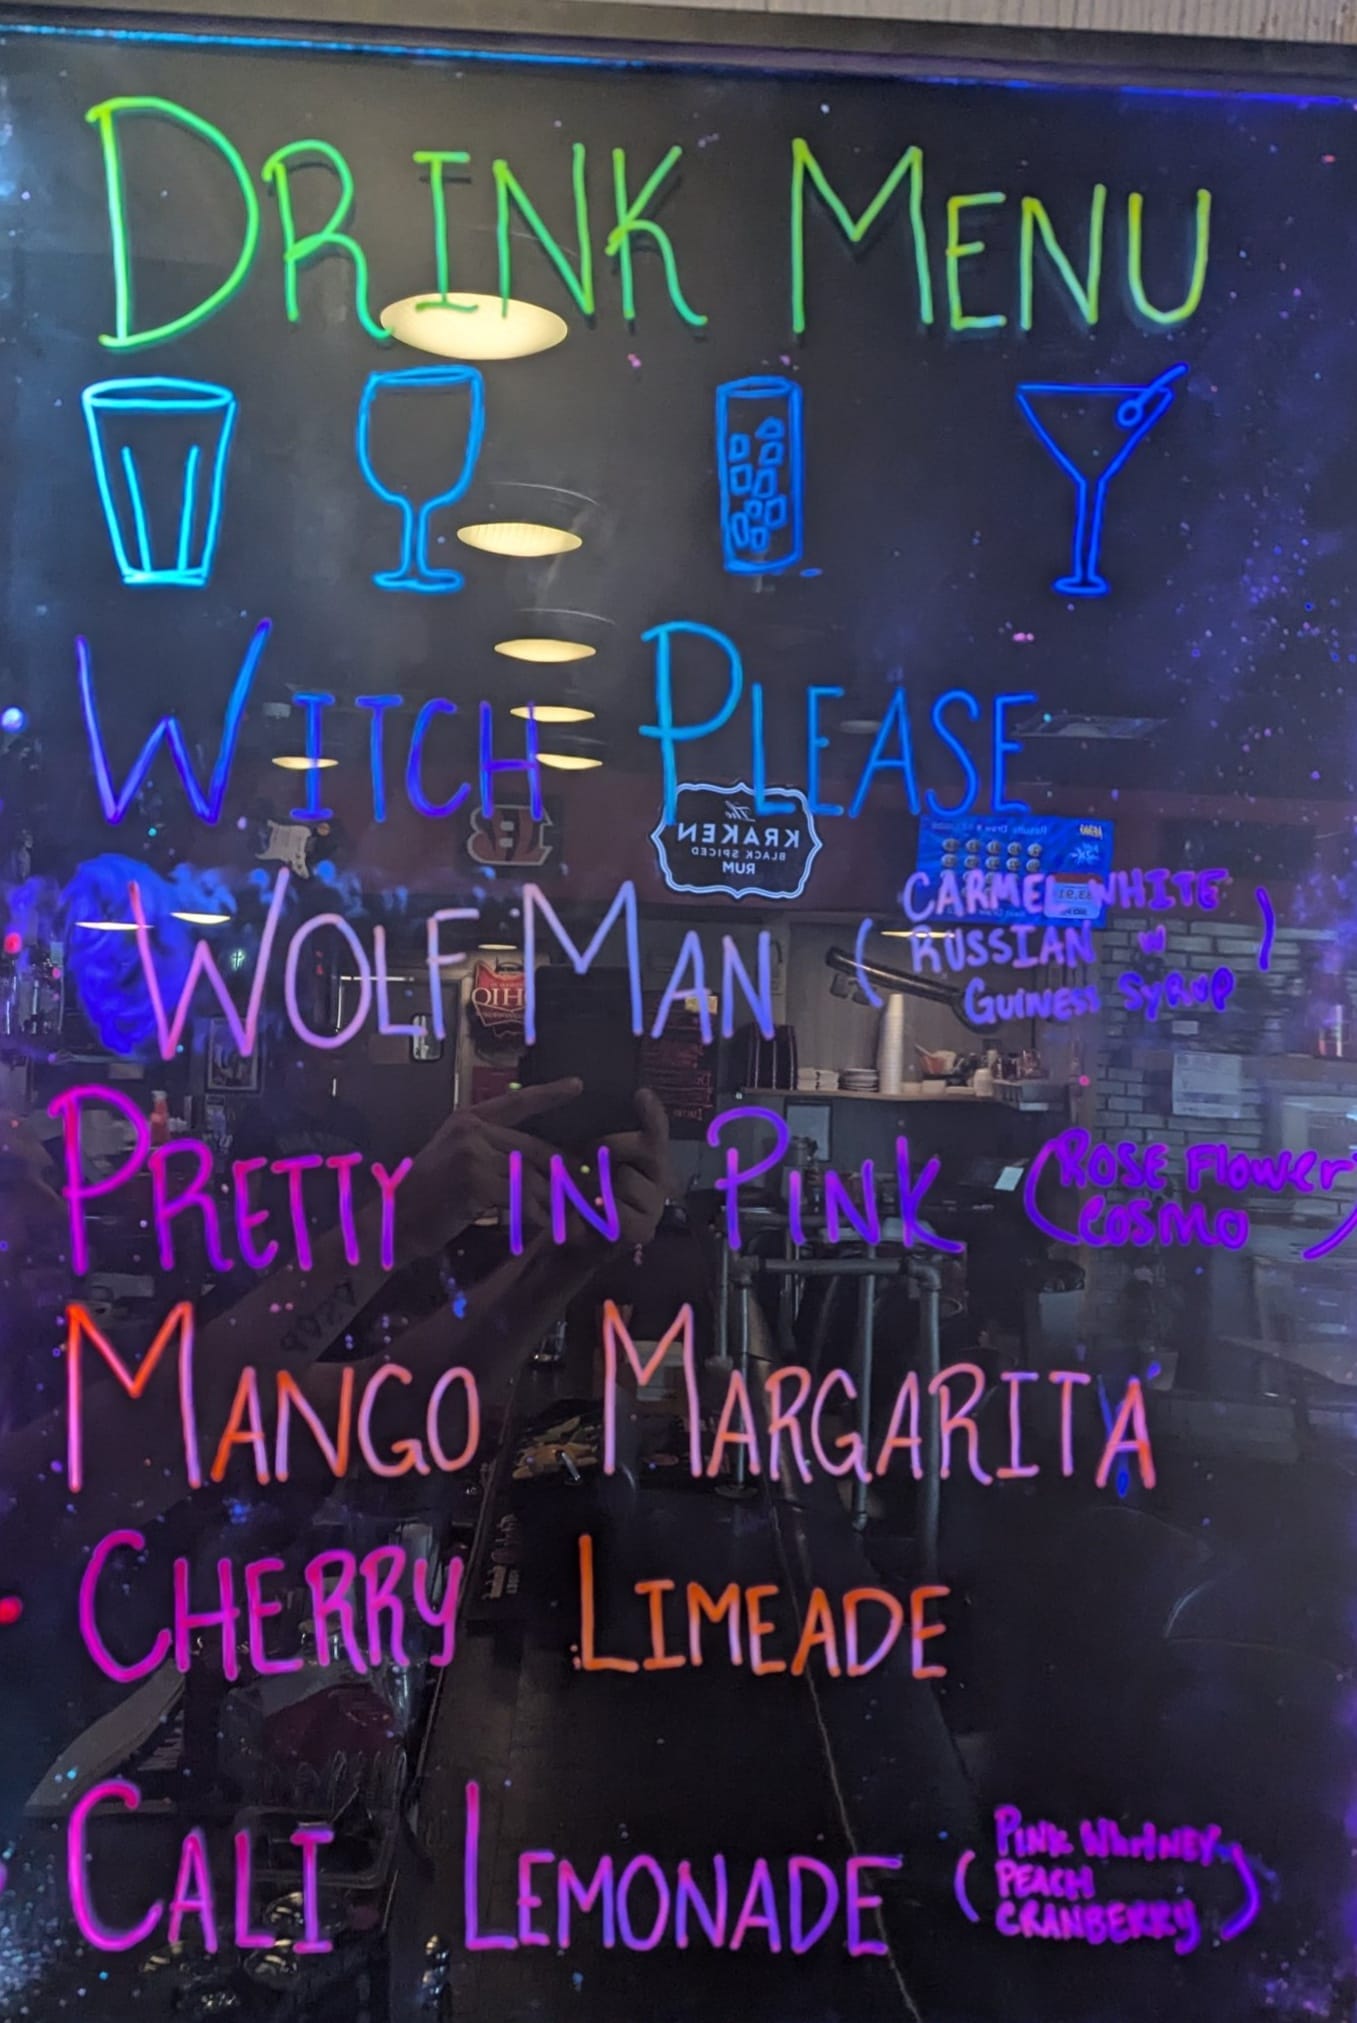 DRINK MENU
WITCH PLEASE
The
KRAKEN
BLACK SPICED
RUM
WOLF MAN (CARMEL WHITE
RUSSIAN W
GUINESS SYRUP)
PRETTY IN PINK (ROSE FLOWER
COSMO)
MANGO MARGARITA
CHERRY LIMEADE
CALI LEMONADE (PINK WHITNEY
PEACH
CRANBERRY)